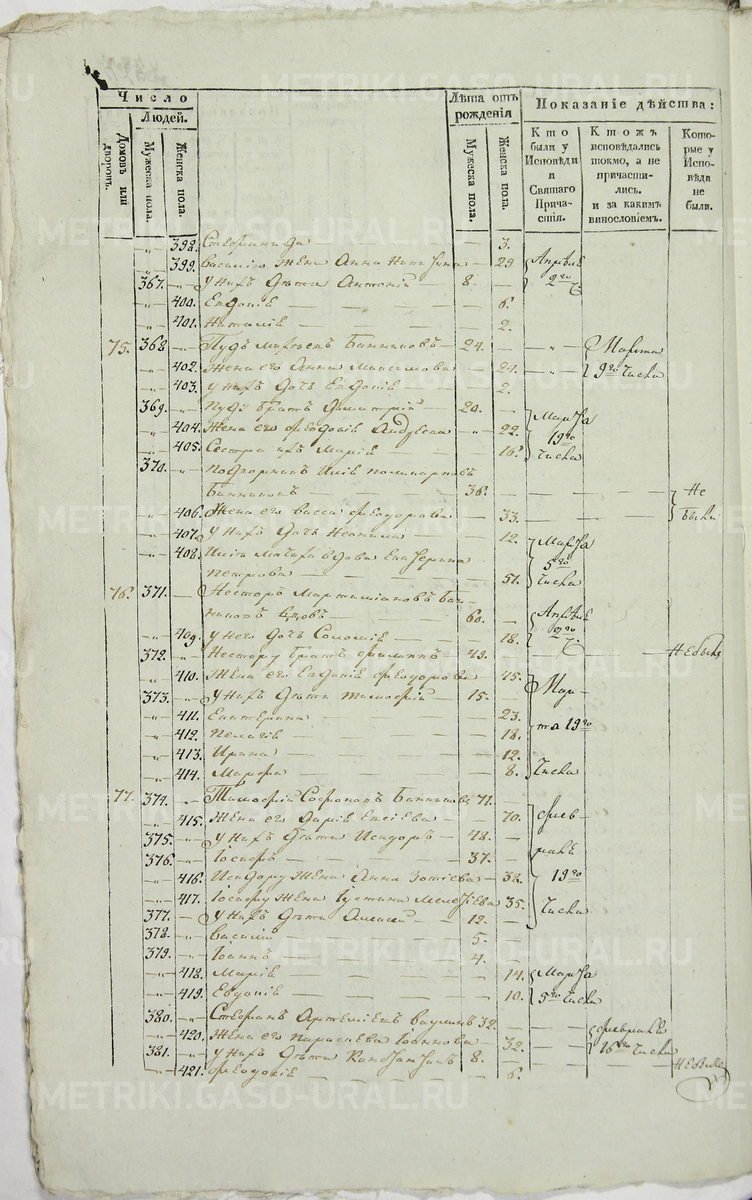 Число
Людей.
Домовъ или дворовъ.
Мужеска пола.
Женска пола.
Лѣта отъ рожденія
Мужеска пола.
Женска пола.
Показаніе дѣйства:
Кто были у Исповѣди и Святаго Причастія.
Ктожъ исповѣдались токмо, а не причастились. и за какимъ винословіемъ.
Которые у Исповѣди не были.
398. Стефанида 3.
399. Василію жена Анна 29 Апрѣля
367. У нихъ дѣти Антоній 8. 2го
400. Евдокія 6.
401. Наталія 2.
75. 368 Пудъ Банниковъ 24. Марта
402. Жена его Анна Максимова 24. 9го Числа
403. У нихъ дочь Евдокія 2.
369. Пуду братъ Димитрій 20. Марта
404. Жена его Феодосія 22. 19го
405. Сестра ихъ Марія 16. Числа
370. Подворникъ Илія Поликарповъ
Банниковъ 36. Не
406. Жена его Васса Феодорова 33. были
407. У нихъ дочь Неонила 12. Марта
408. Иліи мачиха вдова Екатерина 5го
Петрова 51. Числа
76. 371. Несторъ Мартиміановъ Бан-
никовъ вдовъ 60. Апрѣля
409. У него дочь Соломія 18. 2го
372. Нестору братъ Филиппъ 43. Не были
410. Жена его Евдокія Феодорова 45. Мар-
373. У нихъ дѣти Тимофей 15.
411. Екатерина 23.
412. Пелагія 18. та 19го
413. Ирина 12.
414. Марфа 8. Числа
77. 374. Тимофей Софроновъ Банниковъ 71.
415. Жена его Дарія Елисіева 70. Фев-
375. У нихъ дѣти Исидоръ 43. раля
376. Іосифъ 37.
416. Исидору жена Анна Зотіева 38. 19го
417. Іосифу жена Іустина 35. Числа
377. У нихъ дѣти Алексей 12.
378. Василій 5.
379. Іоаннъ 4.
418. Марія 14. Марта
419. Евдокія 10. 5го Числа
380. Стефанъ Артеміевъ Ваулинъ 32. Февраля
420. Жена его Параскева Іоаннова 32. 16го Числа
381. У нихъ дѣти Константинъ 8. Не были
421. Феодосія 6.
METRIKI.GASO-URAL.RU